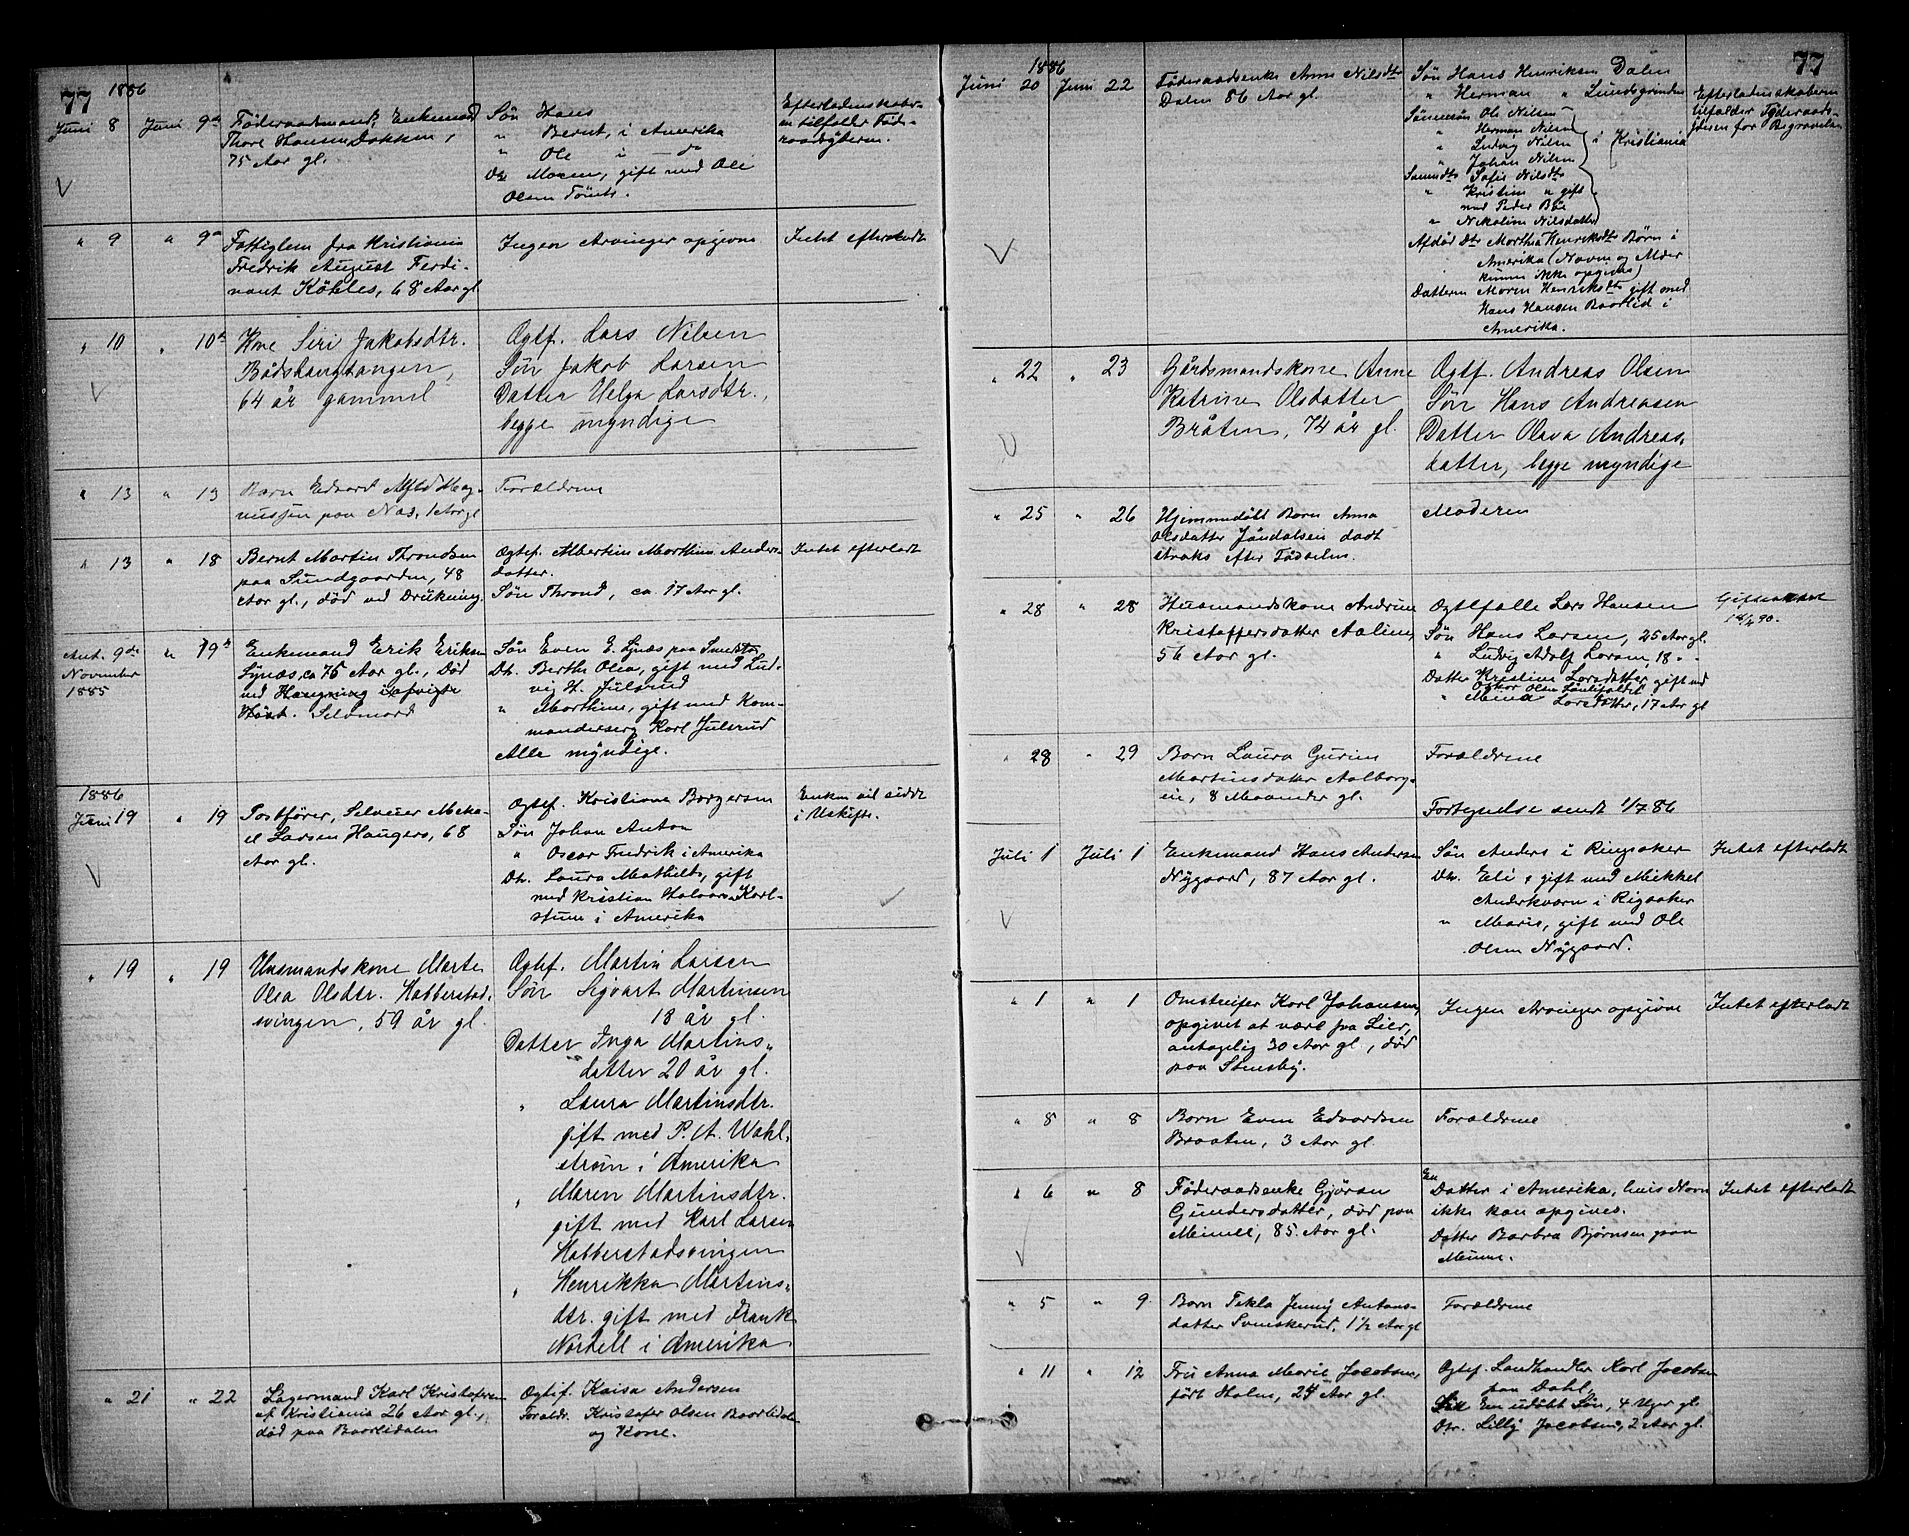 77
1886
Juni 8
Juni 9de
Föderaadsmand, Enkemand
Thore Hansen Dokken,
75 Aar gl.
Søn Hans
" Bernt, i Amerika
" Ole i do
Dtr. Maren, gift med Ole
Olsen
Efterladenskaber-
ne tilfalder Föde-
raadsyderen.
" 9
" 9de
Fattiglem fra Kristiania
Fredrik August Ferdi-
nant Köhles, 68 Aar gl
Ingen Arvinger opgivne
Intet efterladt
" 10
" 10de
Kone Siri Jakobsdtr.
Bådshaugtangen,
64 år gammel
Egtef. Lars Nilsen
Søn Jakob Larsen
Datter Helga Larsdtr.,
begge myndige
" 13
" 13
Barn Edvard Alfred Mag-
nussen paa Næs, 1 Aar gl
Forældrene
" 13
" 18
Bernt Martin Throndsen
paa Sundgaarden, 48
Aar gl., død ved Drukning.
Egtef. Albertine Marthine Anders-
datter.
Søn Thrond, ca. 17 Aar gl.
Intet efterladt
Ant. 9de
November
1885
" 19de
Enkemand Erik Eriksen
Lynæs, ca 75 Aar gl., Død
ved Hængning i afvigte
Høst. Selvmord
Søn Even E. Lynæs paa
Dt. Berthe Olea, gift med Lud-
vig H. Julsrud
" Marthine, gift med Kom-
manderserg. Karl Julsrud
Alle myndige.
1886
Juni 19
" 19
Postfører, Selveier Mika-
el Larsen Haugers, 68
Aar gl.
Egtef. Kristiane Borgersen
Søn Johan Anton
" Oscar Fredrik i Amerika
Dtr. Laura Mathilde, gift
med Kristian Halvorsen Karl-
stuen i Amerika
Enken vil sidde
i Uskifte.
" 19
" 19
Husmandskone Marte
Olea Olsdtr. Habberstad-
svingen, 59 år gl.
Egtef. Martin Larsen
Søn Sigvart Martinsen
18 år gl.
Datter Inga Martins-
datter 20 år gl.
" Laura Martinsdtr.
gift med P. A. Wahl-
strøm i Amerika
" Maren Martinsdtr.
gift med Karl Larsen
Habberstadsvingen
" Henrikka Martins-
dtr. gift med Frank
Nordell i Amerika
" 21
" 22
Lagermand Karl Kristofersen
af Kristiania 26 Aar gl.,
død paa Baarlidalen
Egtef. Kaisa Andersen
Forældr. Kristofer Olsen Baarlidalen
og Kone.
77
1886
Juni 20
Juni 22
Föderaadsenke Anne Nilsdtr
Dalen 86 Aar gl.
Søn Hans Henriksen Dalen
" Herman " Lundsgrinden
Sønnesøn Ole Nilsen
" Herman Nilsen
" Ludvig Nilsen
" Johan Nilsen
i Kristiania
Sønnedtr Sofie Nilsdtr
" Kristine " gift
med Peder Bøe
" Nikoline Nilsdatter
Afdød Dtr Marthea Henriksdtr Børn i
Amerika (Navne og Alder
kunne ikke opgives)
Datteren Maren Henriksdtr gift med
Hans Hansen Baarlid i
Amerika.
Efterladenskaberne
tilfalder Föderaads-
yderen for Begravelse
" 22
" 23
Gårdsmandskone Anne
Katrine Olsdatter
Bråten, 74 år gl.
Egtf. Andreas Olsen
Søn Hans Andreasen
Datter Olava Andreas-
datter, begge myndige
" 25
" 26
Hjemmedøbt Barn Anna
Olsdatter Jøndalseie død
straks efter Fødselen.
Moderen
" 28
" 28
Husmandskone Andrine
Kristoffersdatter
56 Aar gl.
Egtefælle Lars Hansen
Søn Hans Larsen, 25 Aar gl.
" Ludvig Adolf Larsen, 18 "
Datter Kristine Larsdatter gift med
Oskar Olsen
" Mina Larsdatter, 17 Aar gl
" 28
" 29
Barn Laura Gurine
Martinsdatter Aalborg-
eie, 8 Maaneder gl.
Forældrene
Fortegnelse sendt 1/7 86
Juli 1
Juli 1
Enkemand Hans Andersen
Nygaard, 87 Aar gl.
Søn Anders i Ringsaker
Dtr. Eli, gift med Mikkel
Anderkværn i Rigsaker
" Marie, gift med Ole
Olsen Nygaard.
Intet efterladt
" 1
" 1
Omstreifer Karl Johansen,
opgivet at være fra Lier,
antagelig 30 Aar gl., død
paa Stensby.
Ingen Arvinger opgivne
Intet efterladt
" 8
" 8
Barn Even Edvardsen
Braaten, 3 Aar gl
Forældrene
" 6
" 8
Föderaadsenke Gjøran
Gundersdatter, død paa
Minne, 85 Aar gl.
En
Datter i Amerika, hvis Navn
ikke kan opgives.
Datter Barbra Bjørnsen paa
Minne.
Intet efterladt
" 5
" 9
Barn Tekla Jenny Antons-
datter Svenskerud, 1 1/2 Aar gl
Forældrene
" 11
" 12
Fru Anna Marie Jacobsen,
født Holm, 24 Aar gl.
Egtef. Landhandler Karl Jacobsen
paa Dahl,
En udøbt Søn, 4 Uger gl
Dtr. Lilly Jacobsen, 2 Aar gl.